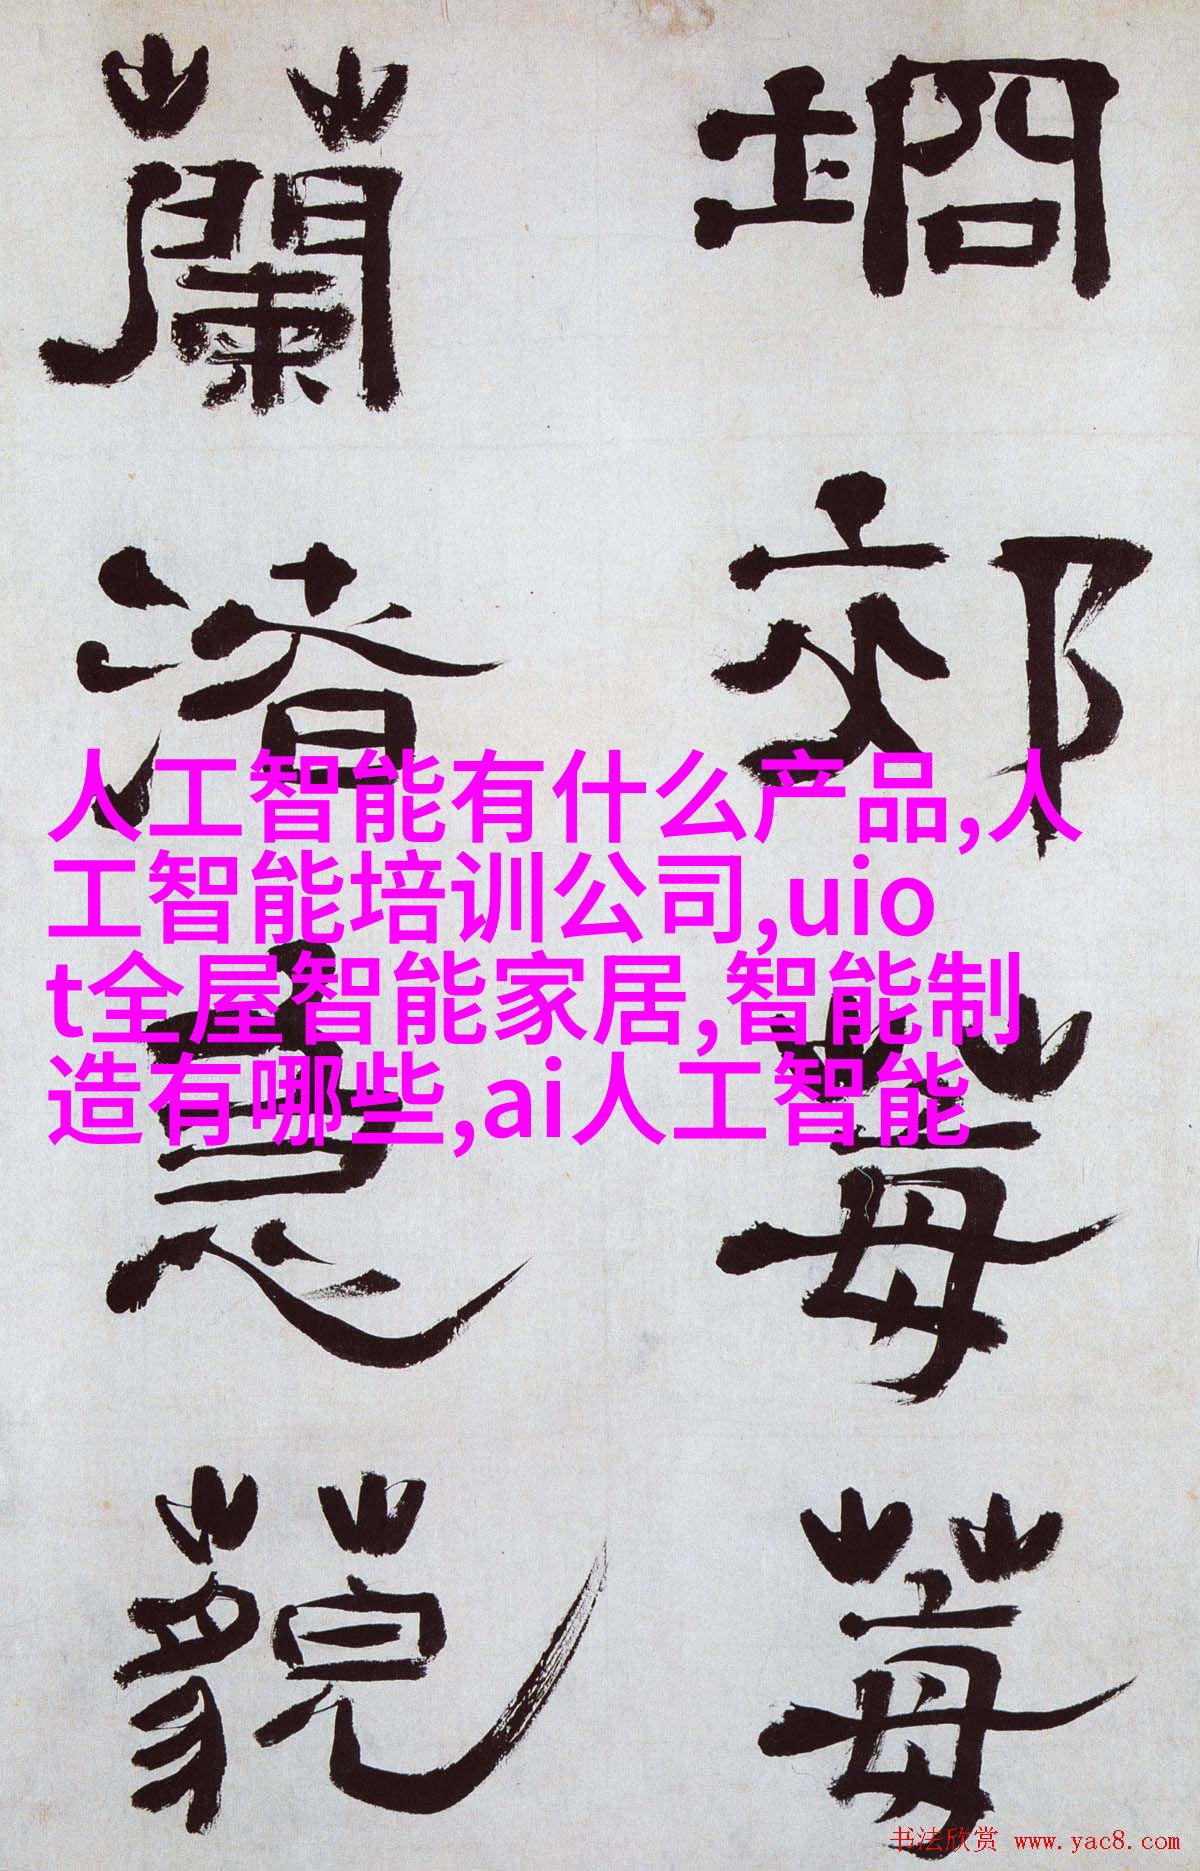 坰郊莓莓
蘭渚藐
人工智能有什么产品,人
工智能培训公司,uio
t全屋智能家居,智能制
造有哪些,ai人工智能
书法欣赏 www.yac8.com